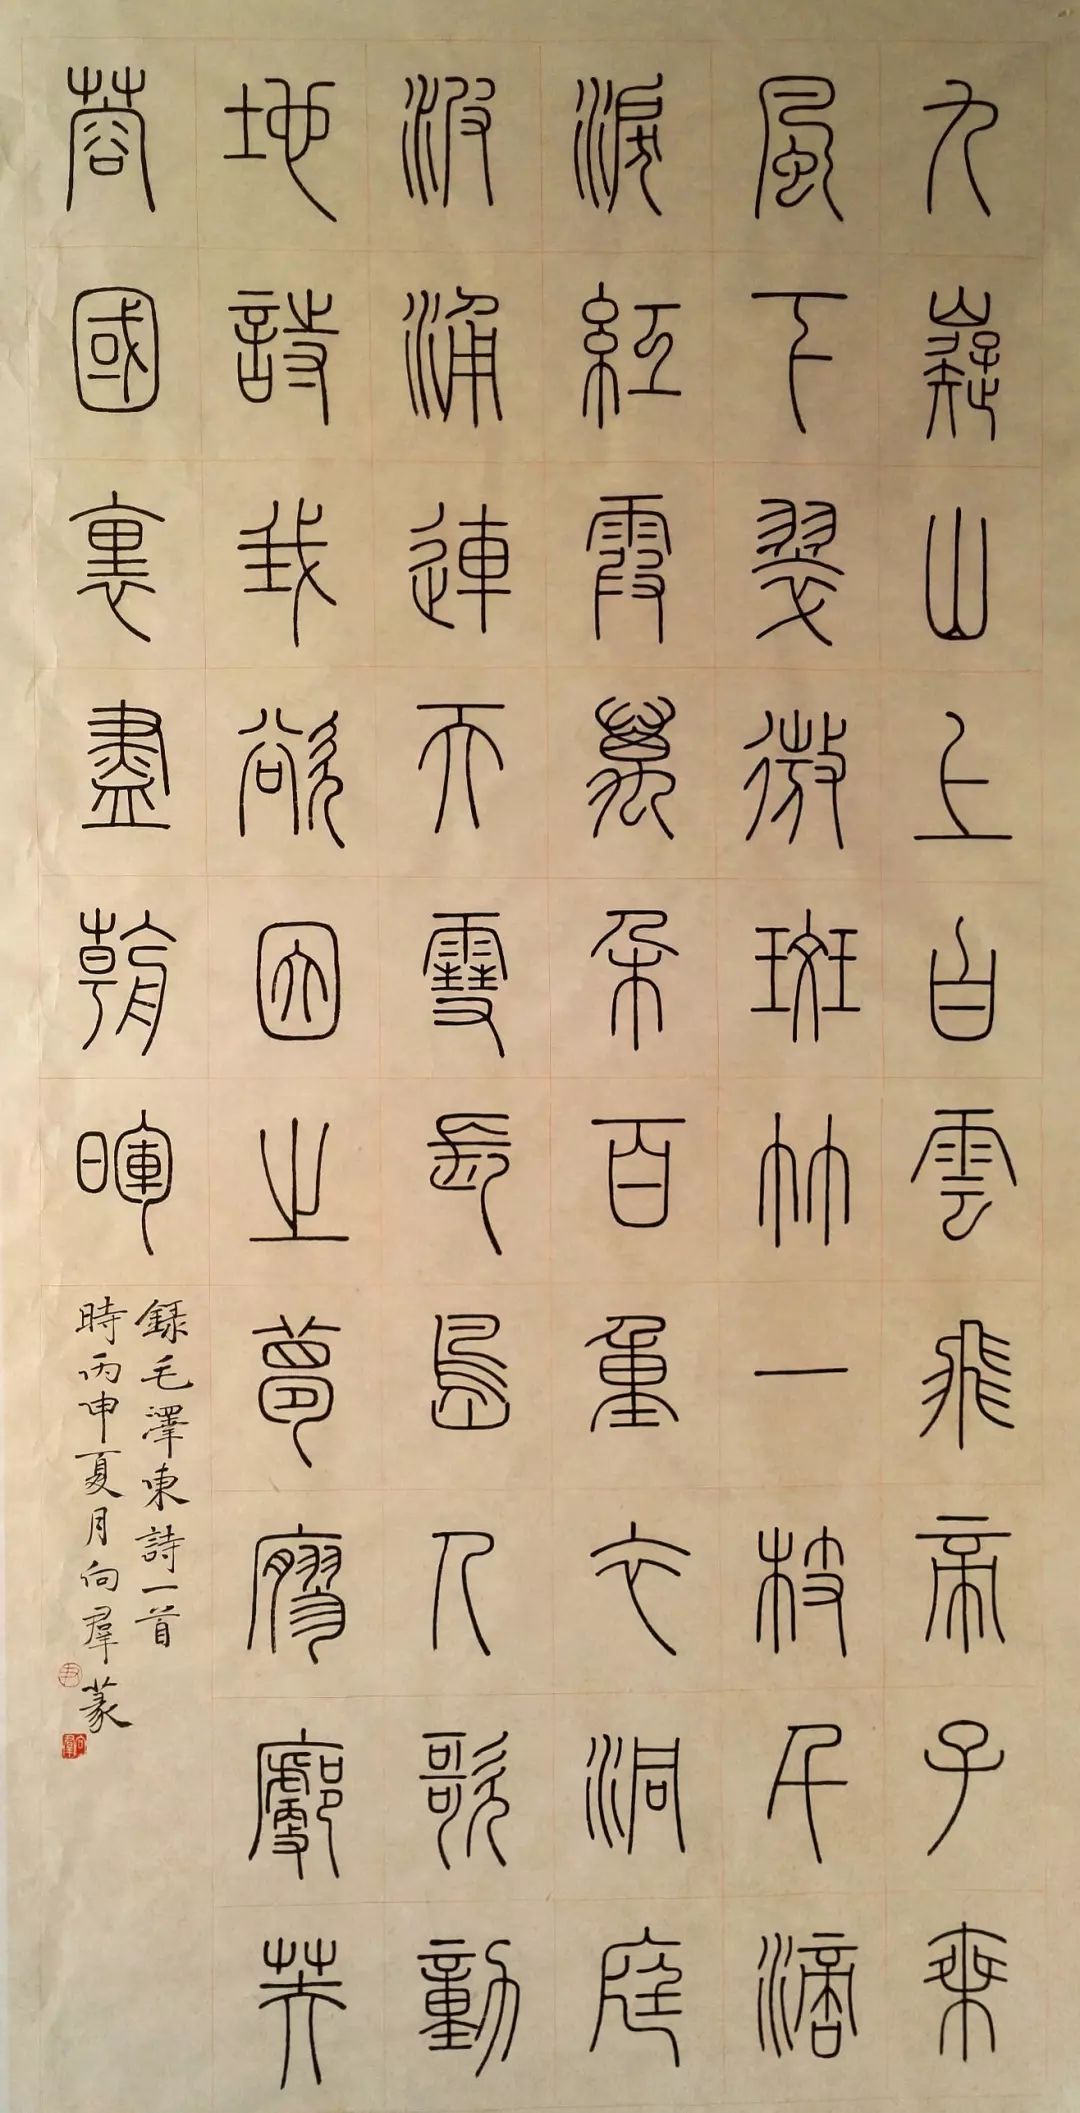 九嶷山上白雲飛帝子乘
風下翠微斑竹一枝千滴
淚紅霞萬朵百重衣洞庭
波涌連天雪長島人歌動
地詩我欲因之夢寥廓芙
蓉國裏盡朝暉
錄毛澤東詩一首
時丙申夏月向羣篆